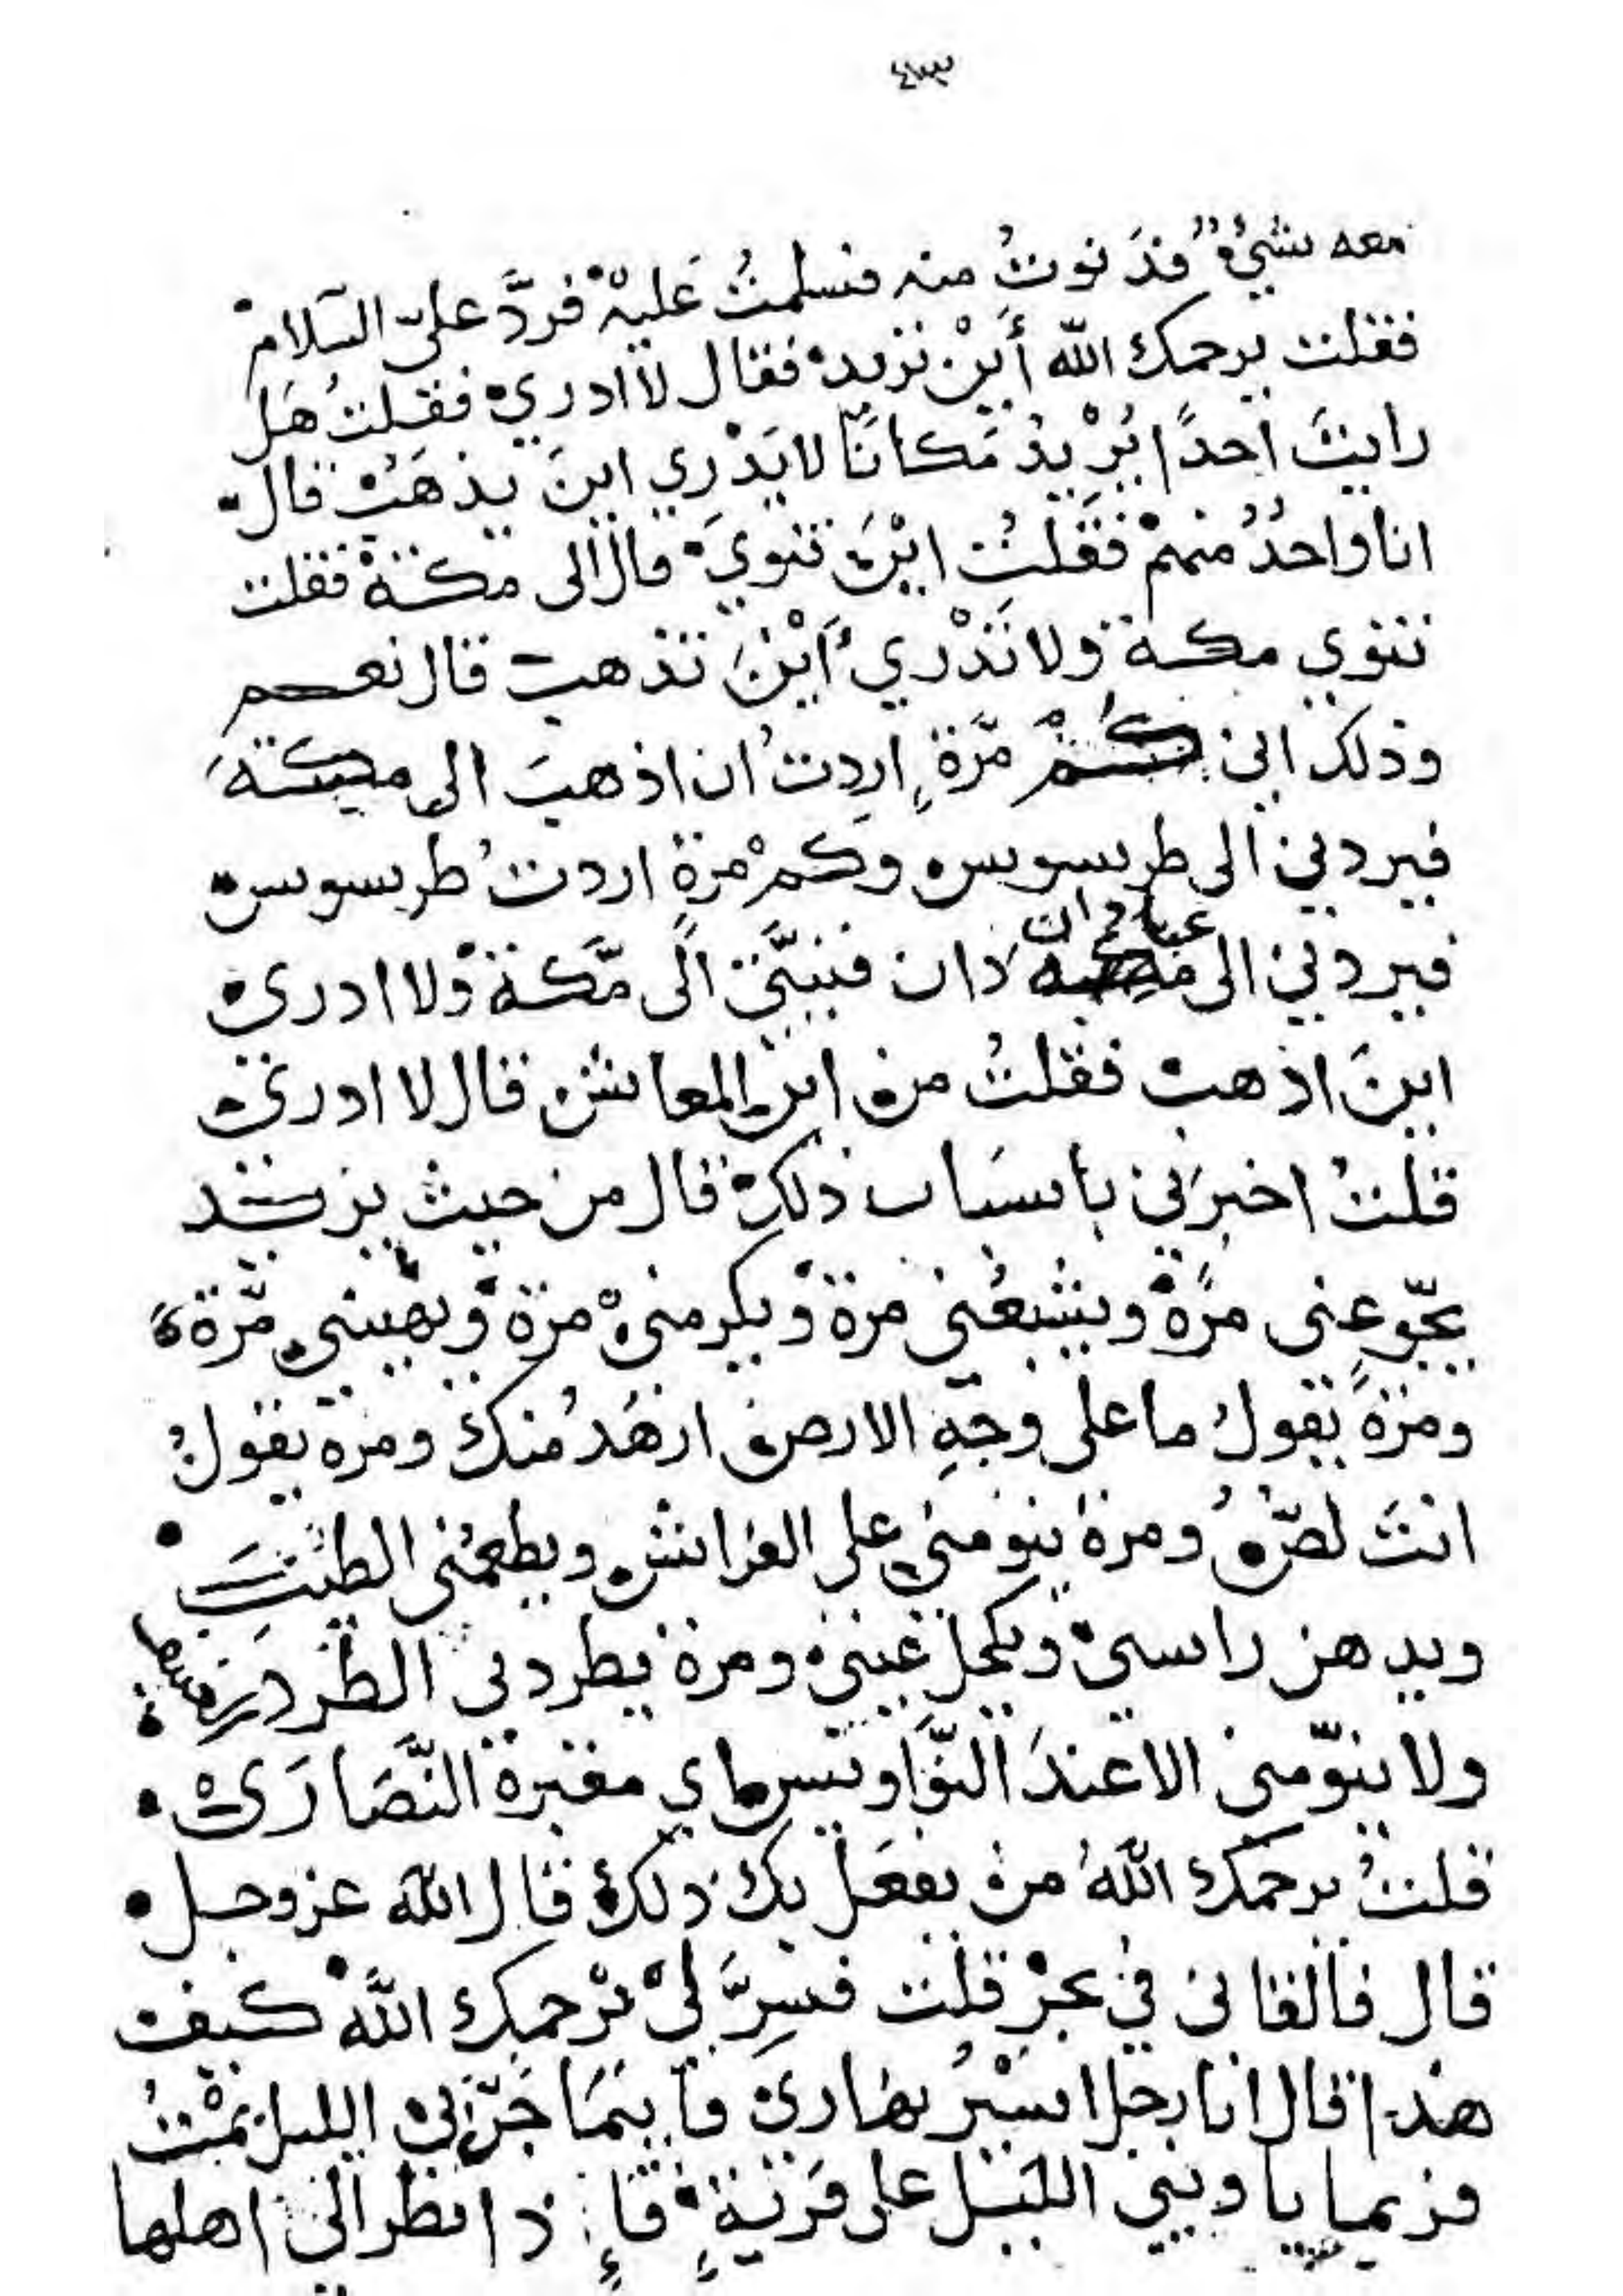 ٤٣
معه شيءٌ فدَنوتُ منه فسلمتُ عَليهْ فردَّ عليّ السلامْ
فقلت يرحمك الله أَيْن تريد فقال لا ادري فقلتُ هَل
رايتَ احدًا يُرْيدُ مَكانًا لا يَدْرِي اينَ يذهَبْ قال
انا واحدٌ منهمْ فقَلتُ ايْنَ تنوي قال الى مكة فقلت
تنوي مكة ولا تَدْري أَيْنَ تذهب قال نعم
وذلك اني كمْ مَرّةٍ اردتُ ان اذهبَ الى مكةَ
فيردني الى طرسوس وكمْ مرةٍ اردتُ طرسوس
فيردني الى عبادان فنيَّتي الى مَكة ولا ادري
اينَ اذهب فقلتُ من اين المعاش قال لا ادري
قلتُ اخبرَني باسباب ذلك قال من حيث يريد
يجّوعني مرّةً ويشبعُني مرة ويكرمني مرة ويهينني مرّة
ومرةً يقولُ ما على وجهِ الارض ازهَدُ منك ومرة يقولُ
انتَ لصٌّ ومرة ينومني على الفراش ويطعمُني الطيّبَ
ويدهن راسي ويكحل عيني ومرة يطردني الطرد
ولا ينوّمني الا عندَ النّواويس اي مقبرة النَّصَارَى
قلتُ يرحمك اللهُ من يفعَل بك ذلك قال الله عز وجل
قال فالقاني في بحرْ قلت فسِرَّ ليْ يرْحمك اللهْ كيف
هذا قال انا رجل اسيْرُ نهاري فاينَمَا جَنّ بي الليل نمْتُ
فربما ياويني الليَل على قَريَةٍ فَإِذا نظر الي اهلها